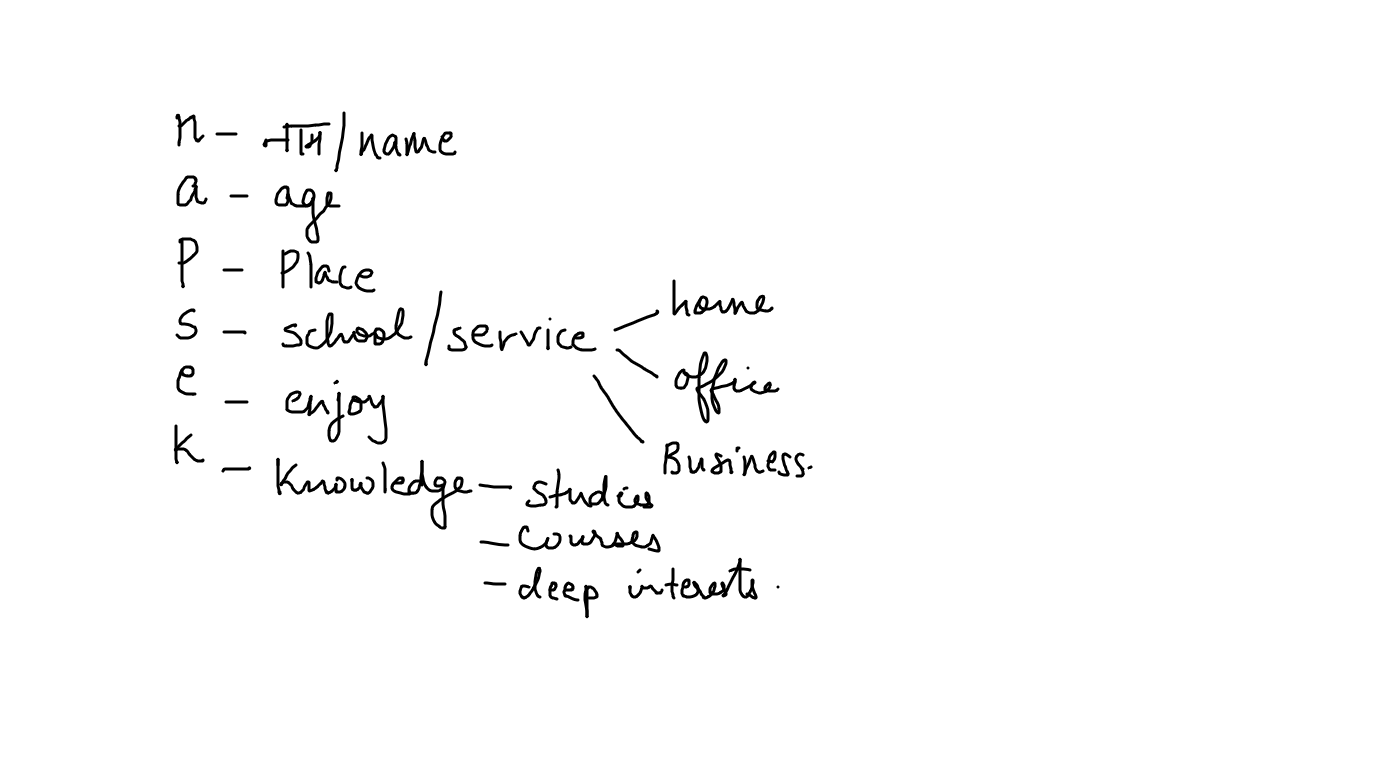 n - नाम/name
a - age
P - Place
S - school/service - home
- office
- Business.
e - enjoy
K - Knowledge - studies
- Courses
- deep interests.